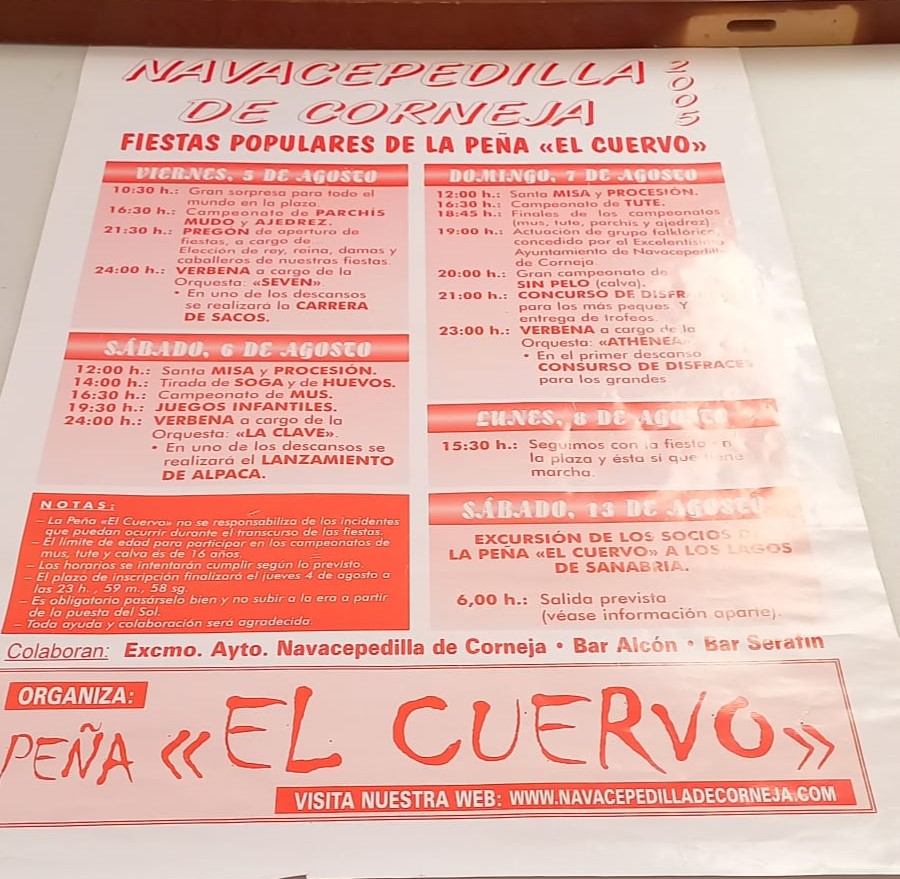 NAVACEPEDILLA
DE CORNEJA
2005
FIESTAS POPULARES DE LA PEÑA «EL CUERVO»
VIERNES, 5 DE AGOSTO
10:30 h.: Gran sorpresa para todo el
mundo en la plaza.
16:30 h.: Campeonato de PARCHÍS
MUDO y AJEDREZ.
21:30 h.: PREGÓN de apertura de
fiestas, a cargo de...
Elección de rey, reina, damas y
caballeros de nuestras fiestas.
24:00 h.: VERBENA a cargo de la
Orquesta: «SEVEN».
• En uno de los descansos
se realizará la CARRERA
DE SACOS.
SÁBADO, 6 DE AGOSTO
12:00 h.: Santa MISA y PROCESIÓN.
14:00 h.: Tirada de SOGA y de HUEVOS.
16:30 h.: Campeonato de MUS.
19:30 h.: JUEGOS INFANTILES.
24:00 h.: VERBENA a cargo de la
Orquesta: «LA CLAVE».
• En uno de los descansos se
realizará el LANZAMIENTO
DE ALPACA.
NOTAS:
– La Peña «El Cuervo» no se responsabiliza de los incidentes
que puedan ocurrir durante el transcurso de las fiestas.
– El límite de edad para participar en los campeonatos de
mus, tute y calva es de 16 años.
– Los horarios se intentarán cumplir según lo previsto.
– El plazo de inscripción finalizará el jueves 4 de agosto a
las 23 h., 59 m., 58 sg.
– Es obligatorio pasárselo bien y no subir a la era a partir
de la puesta del Sol.
– Toda ayuda y colaboración será agradecida.
DOMINGO, 7 DE AGOSTO
12:00 h.: Santa MISA y PROCESIÓN.
16:30 h.: Campeonato de TUTE.
18:45 h.: Finales de los campeonatos
(mus, tute, parchís y ajedrez).
19:00 h.: Actuación de grupo folklórico,
concedido por el Excelentísimo
Ayuntamiento de Navacepedilla
de Corneja.
20:00 h.: Gran campeonato de
SIN PELO (calva).
21:00 h.: CONCURSO DE
para los más peques. Y
entrega de trofeos.
23:00 h.: VERBENA a cargo de la
Orquesta: «ATHENEA»
• En el primer descanso
CONSURSO DE DISFRACES
para los grandes.
LUNES, 8 DE AGOSTO
15:30 h.: Seguimos con la fiesta en
la plaza y ésta sí que tiene
marcha.
SÁBADO, 13 DE AGOSTO
EXCURSIÓN DE LOS SOCIOS
LA PEÑA «EL CUERVO» A LOS LAGOS
DE SANABRIA.
6,00 h.: Salida prevista
(véase información aparte).
Colaboran: Excmo. Ayto. Navacepedilla de Corneja • Bar Alcón • Bar Serafín
ORGANIZA:
PEÑA «EL CUERVO»
VISITA NUESTRA WEB: WWW.NAVACEPEDILLADECORNEJA.COM